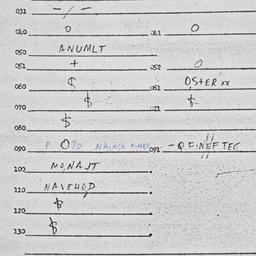 031 - / -
040 0 041 0
050 ANUMLT
051 + 052 0
060 $ 061 OSTER xx
070 $ 071 $
080 $
090 P 0% NAINCA FINEF 091 - 0 FINEFTEC
100 MO,NAJT
110 NAIEHOD
120 $
130 $